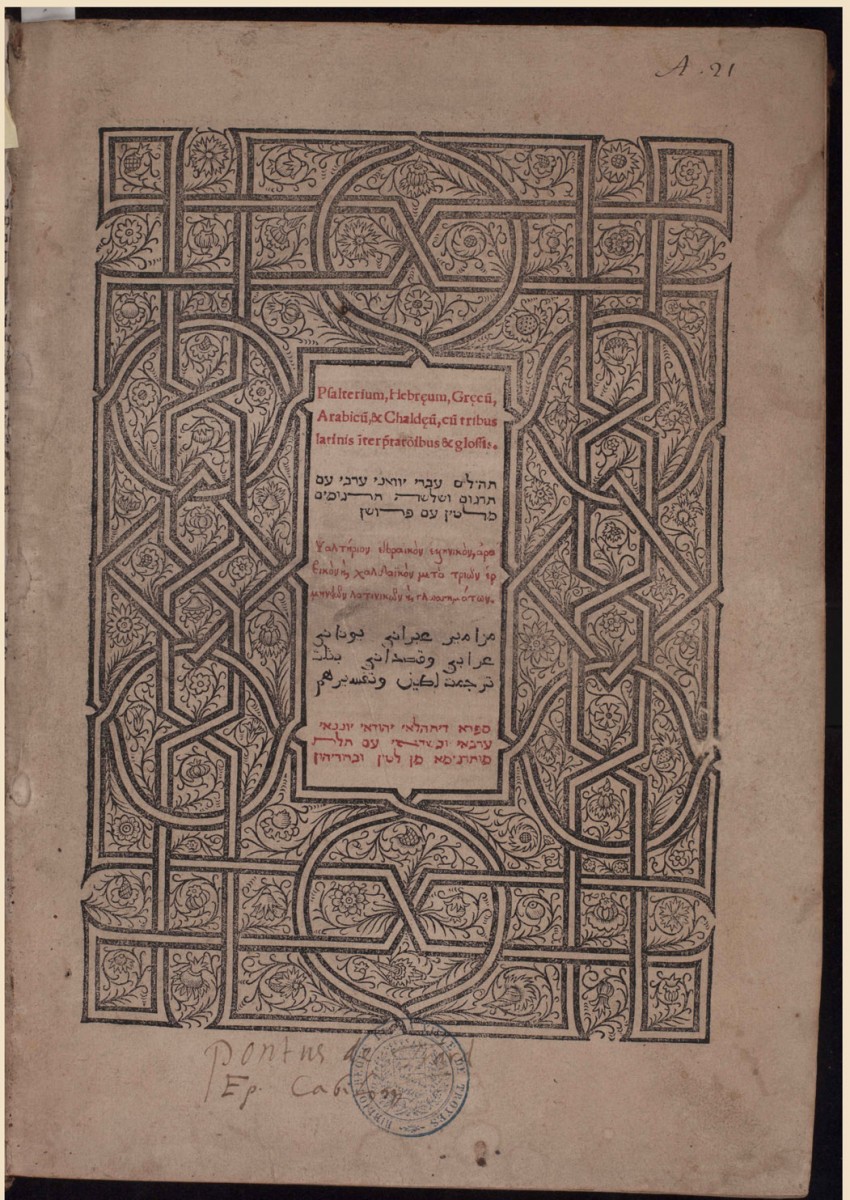 A. 21
Psalterium, Hebręum, Gręcū,
Arabicū, & Chaldęū, cū tribus
latinis īterp̄tatōibus & glossis.
תהילים עברי יוואני ערבי עם
תרגום ושלשה תרגומים
מלטין עם פרושן
Ψαλτήριον ἑβραικὸν ἑλληνικὸν, ἀρα
βικὸν ϗ χαλδαῖκὸν μετὰ τριῶν ἑρ
μηνιῶν λατινικῶν ϗ γλωσημάτων.
مزامير عبراني يوناني
عرابي وقصداني بثلث
ترجمت لطين وتفسيرهم
ספרא דיתהלאי יהודאי יוונאי
ערבאי וכשדאי עם תלת
מותרגימא מן לטין וביריהון
pontus de
Ep. Cabi
BIBLIOTHEQUE DE TROYES